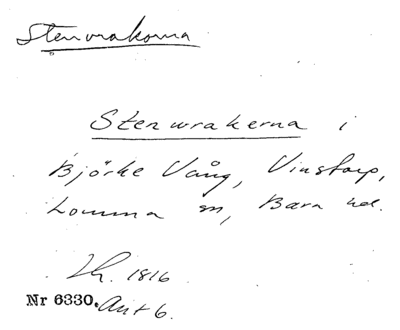 Stenvrakorna
Stenvrakerna i
Björke Vång, Vinstorp,
Lomma sn, Bara hd.
Lh. 1816
Nr 6330. Ant 6.